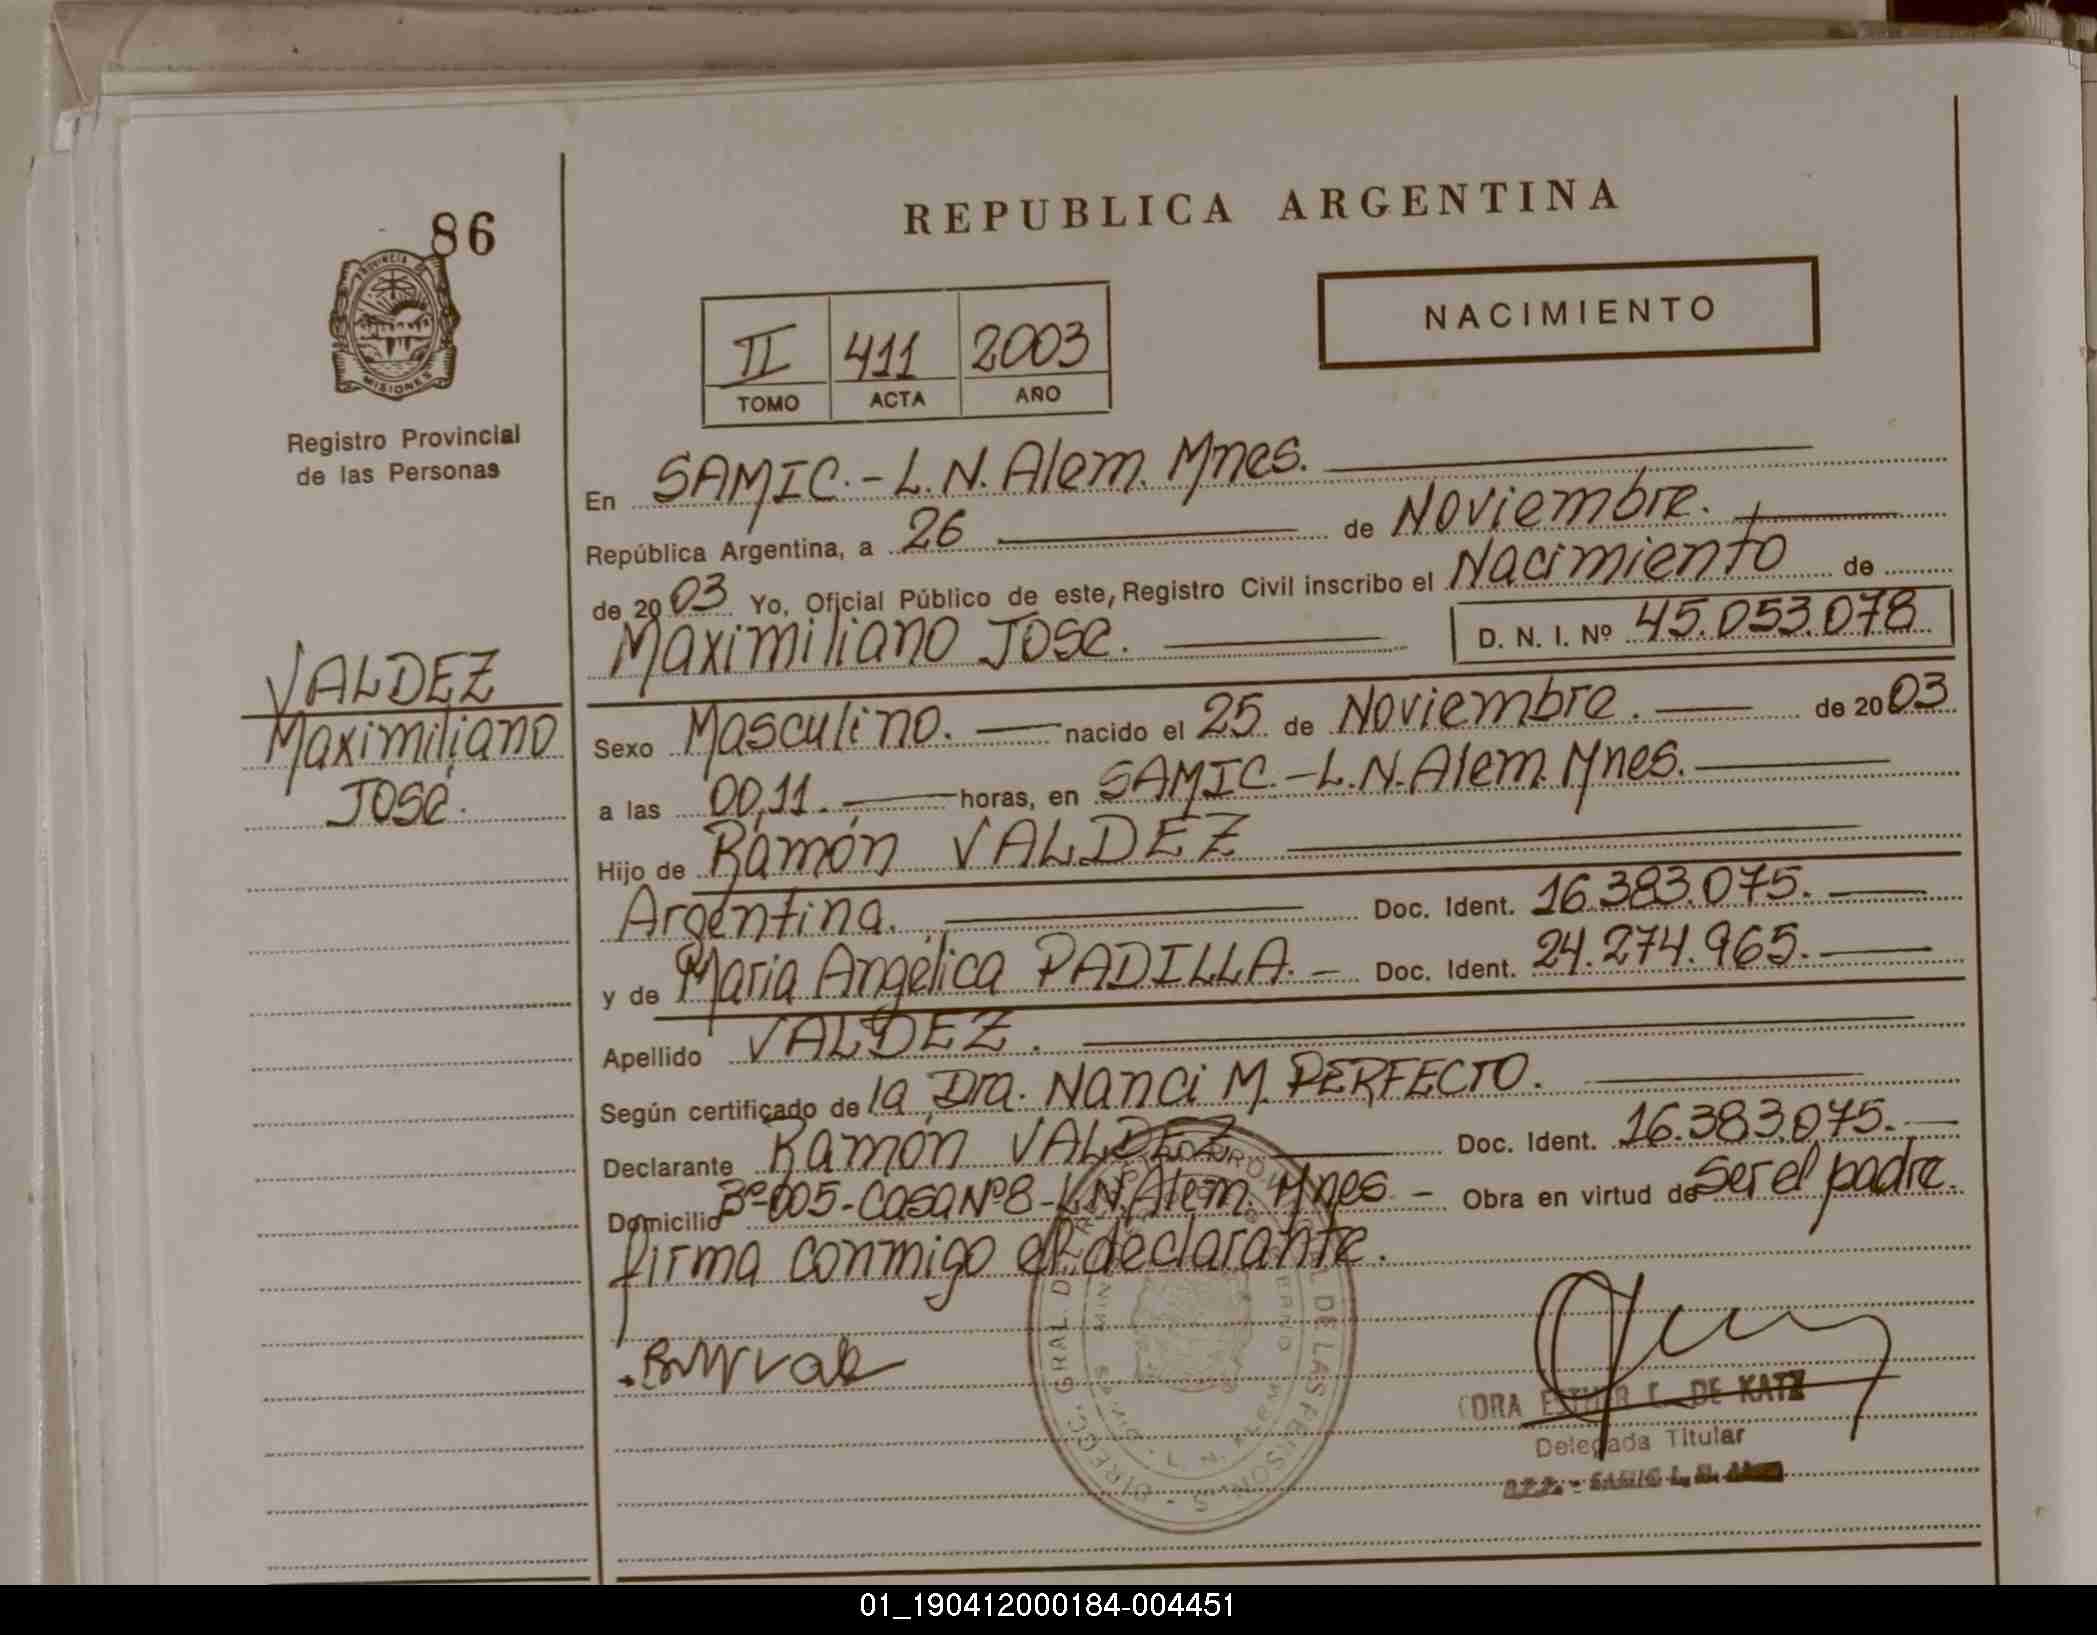 86
PROVINCIA DE
MISIONES
Registro Provincial
de las Personas
VALDEZ
Maximiliano
José.
REPUBLICA ARGENTINA
NACIMIENTO
II 411 2003
TOMO ACTA AÑO
En SAMIC.-L.N.Alem.Mnes.
República Argentina, a 26 de Noviembre.
de 2003 Yo, Oficial Público de este, Registro Civil inscribo el Nacimiento de
Maximiliano José. D. N. I. Nº 45.053.078
Sexo Masculino. nacido el 25 de Noviembre. de 2003
a las 00,11. horas, en SAMIC.-L.N.Alem.Mnes.
Hijo de Ramón VALDEZ
Argentina. Doc. Ident. 16.383.075.
y de Maria Angélica PADILLA. Doc. Ident. 24.274.965.
Apellido VALDEZ.
Según certificado de la Dra. Nanci M. PERFECTO.
Declarante Ramón VALDEZ Doc. Ident. 16.383.075.
Domicilio Bº-005-Casa Nº8-L.N.Alem. Mnes - Obra en virtud de Ser el padre.
firma conmigo el declarante.
DIRECC. GRAL. DE LAS PERSONAS
L. N. ALEM
DRA ESTHER C. DE KATZ
Delegada Titular
SAMIC L. N. Alem
01_190412000184-004451